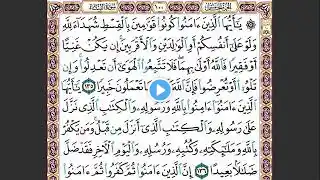 سُورَةُ النِّسَاءِ ١٠٠ الجُزْءُ الخَامِسُ
يَٰٓأَيُّهَا ٱلَّذِينَ ءَامَنُوا۟ كُونُوا۟ قَوَّٰمِينَ بِٱلْقِسْطِ شُهَدَآءَ لِلَّهِ
وَلَوْ عَلَىٰٓ أَنفُسِكُمْ أَوِ ٱلْوَٰلِدَيْنِ وَٱلْأَقْرَبِينَ ۚ إِن يَكُنْ غَنِيًّا
أَوْ فَقِيرًا فَٱللَّهُ أَوْلَىٰ بِهِمَا ۖ فَلَا تَتَّبِعُوا۟ ٱلْهَوَىٰٓ أَن تَعْدِلُوا۟ ۚ وَإِن
تَلْوُۥٓا۟ أَوْ تُعْرِضُوا۟ فَإِنَّ ٱللَّهَ كَانَ بِمَا تَعْمَلُونَ خَبِيرًا ١٣٥ يَٰٓأَيُّهَا
ٱلَّذِينَ ءَامَنُوٓا۟ ءَامِنُوا۟ بِٱللَّهِ وَرَسُولِهِۦ وَٱلْكِتَٰبِ ٱلَّذِى نَزَّلَ
عَلَىٰ رَسُولِهِۦ وَٱلْكِتَٰبِ ٱلَّذِىٓ أَنزَلَ مِن قَبْلُ ۚ وَمَن يَكْفُرْ
بِٱللَّهِ وَمَلَٰٓئِكَتِهِۦ وَكُتُبِهِۦ وَرُسُلِهِۦ وَٱلْيَوْمِ ٱلْءَاخِرِ فَقَدْ ضَلَّ
ضَلَٰلًۢا بَعِيدًا ١٣٦ إِنَّ ٱلَّذِينَ ءَامَنُوا۟ ثُمَّ كَفَرُوا۟ ثُمَّ ءَامَنُوا۟